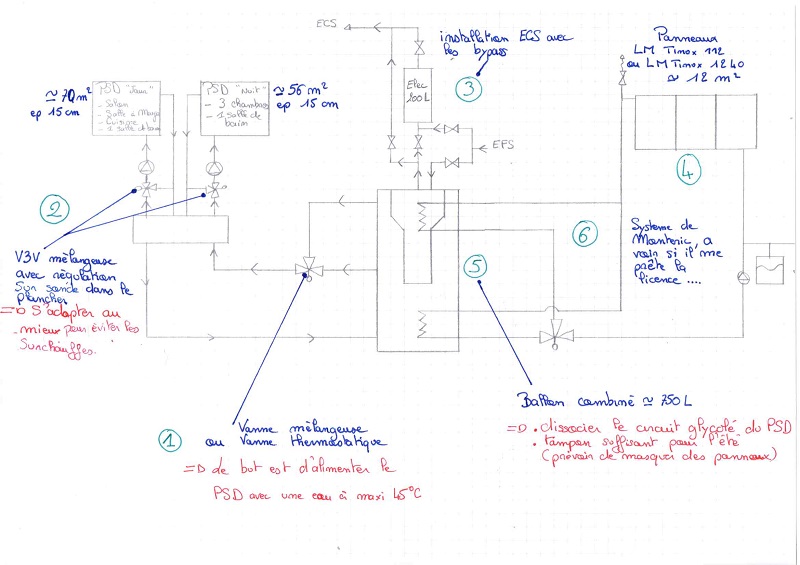 ECS
installation ECS avec
les bypass
3
Panneaux
LM Tinox 112
ou LM Tinox 1240
≈ 12 m²
≈ 70 m²
ep 15 cm
PSD "Jour"
- Salon
- Salle à Manger
- Cuisine
- 1 salle de bain
PSD "Nuit"
- 3 chambres
- 1 salle de
bain
≈ 56 m²
ep 15 cm
Elec
100L
EFS
4
2
V3V mélangeuse
avec régulation
Sur sonde dans le
plancher
=D S'adapter au
mieux pour éviter les
Surchauffes.
5
6
Système de
Manteric, a
voir si il me
prête la
licence ....
1
Vanne mélangeuse
ou Vanne thermostatique
=D Le but est d'alimenter le
PSD avec une eau à maxi 45°C
Ballon combiné ≈ 750L
=D . dissocier le circuit glycolé du PSD
. tampon suffisant pour l'été
(prévoir de masquer des panneaux)